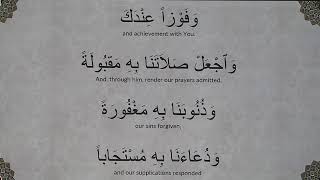 وَفَوْزاً عِنْدَكَ
and achievement with You.
وَٱجْعَلْ صَلاَتَنَا بِهِ مَقْبُولَةً
And, through him, render our prayers admitted,
وَذُنُوبَنَا بِهِ مَغْفُورَةً
our sins forgiven,
وَدُعَاءَنَا بِهِ مُسْتَجَاباً
and our supplications responded